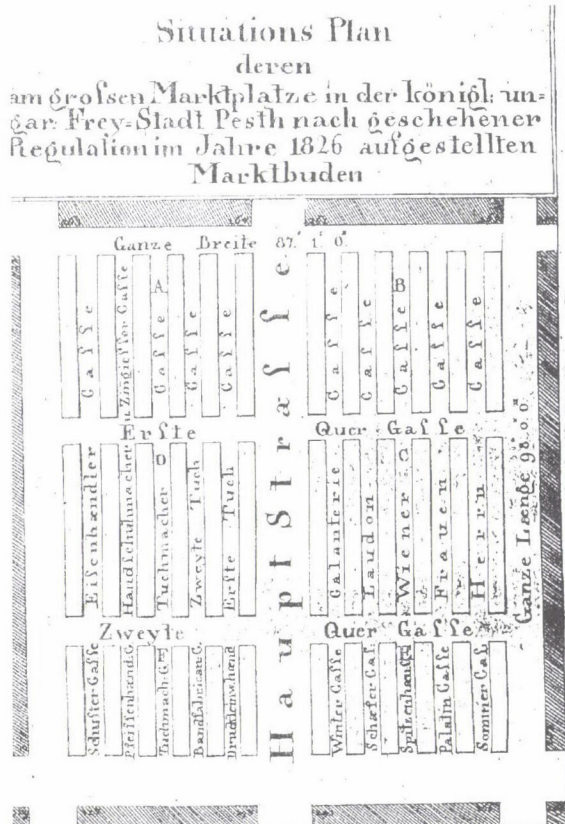 Situations Plan
deren
am grofsen Marktplatze in der königl: un=
gar: Frey=Stadt Pesth nach geschehener
Regulation im Jahre 1826 aufgestellten
Marktbuden
Ganze Breite 87.° 1.' 0."
A
B
Gaſſe
Zingieſſer Gaſſe
Gaſſe
Gaſſe
Gaſſe
HauptStraſſe
Gaſſe
Gaſſe
Gaſſe
Gaſſe
Gaſſe
Ganze Længe 98.° 0.' 0."
Erſte
Quer Gaſſe
Eiſenhændler
Handſchuhmacher
Tuchmacher
Zweyte Tuch
Erſte Tuch
Galanterie
Laudon
Wiener
Frauen
Herrn
Zweyte
Quer Gaſſe
Schuſter Gaſſe
Pfeiffenhænd: G.
Tuchmach: Gaſſe
Bandfabrican: G.
Druckleinwhænd
Winter Gaſſe
Schæfer Gaſ.
Palatin Gaſſe
Sommer Gaſ.